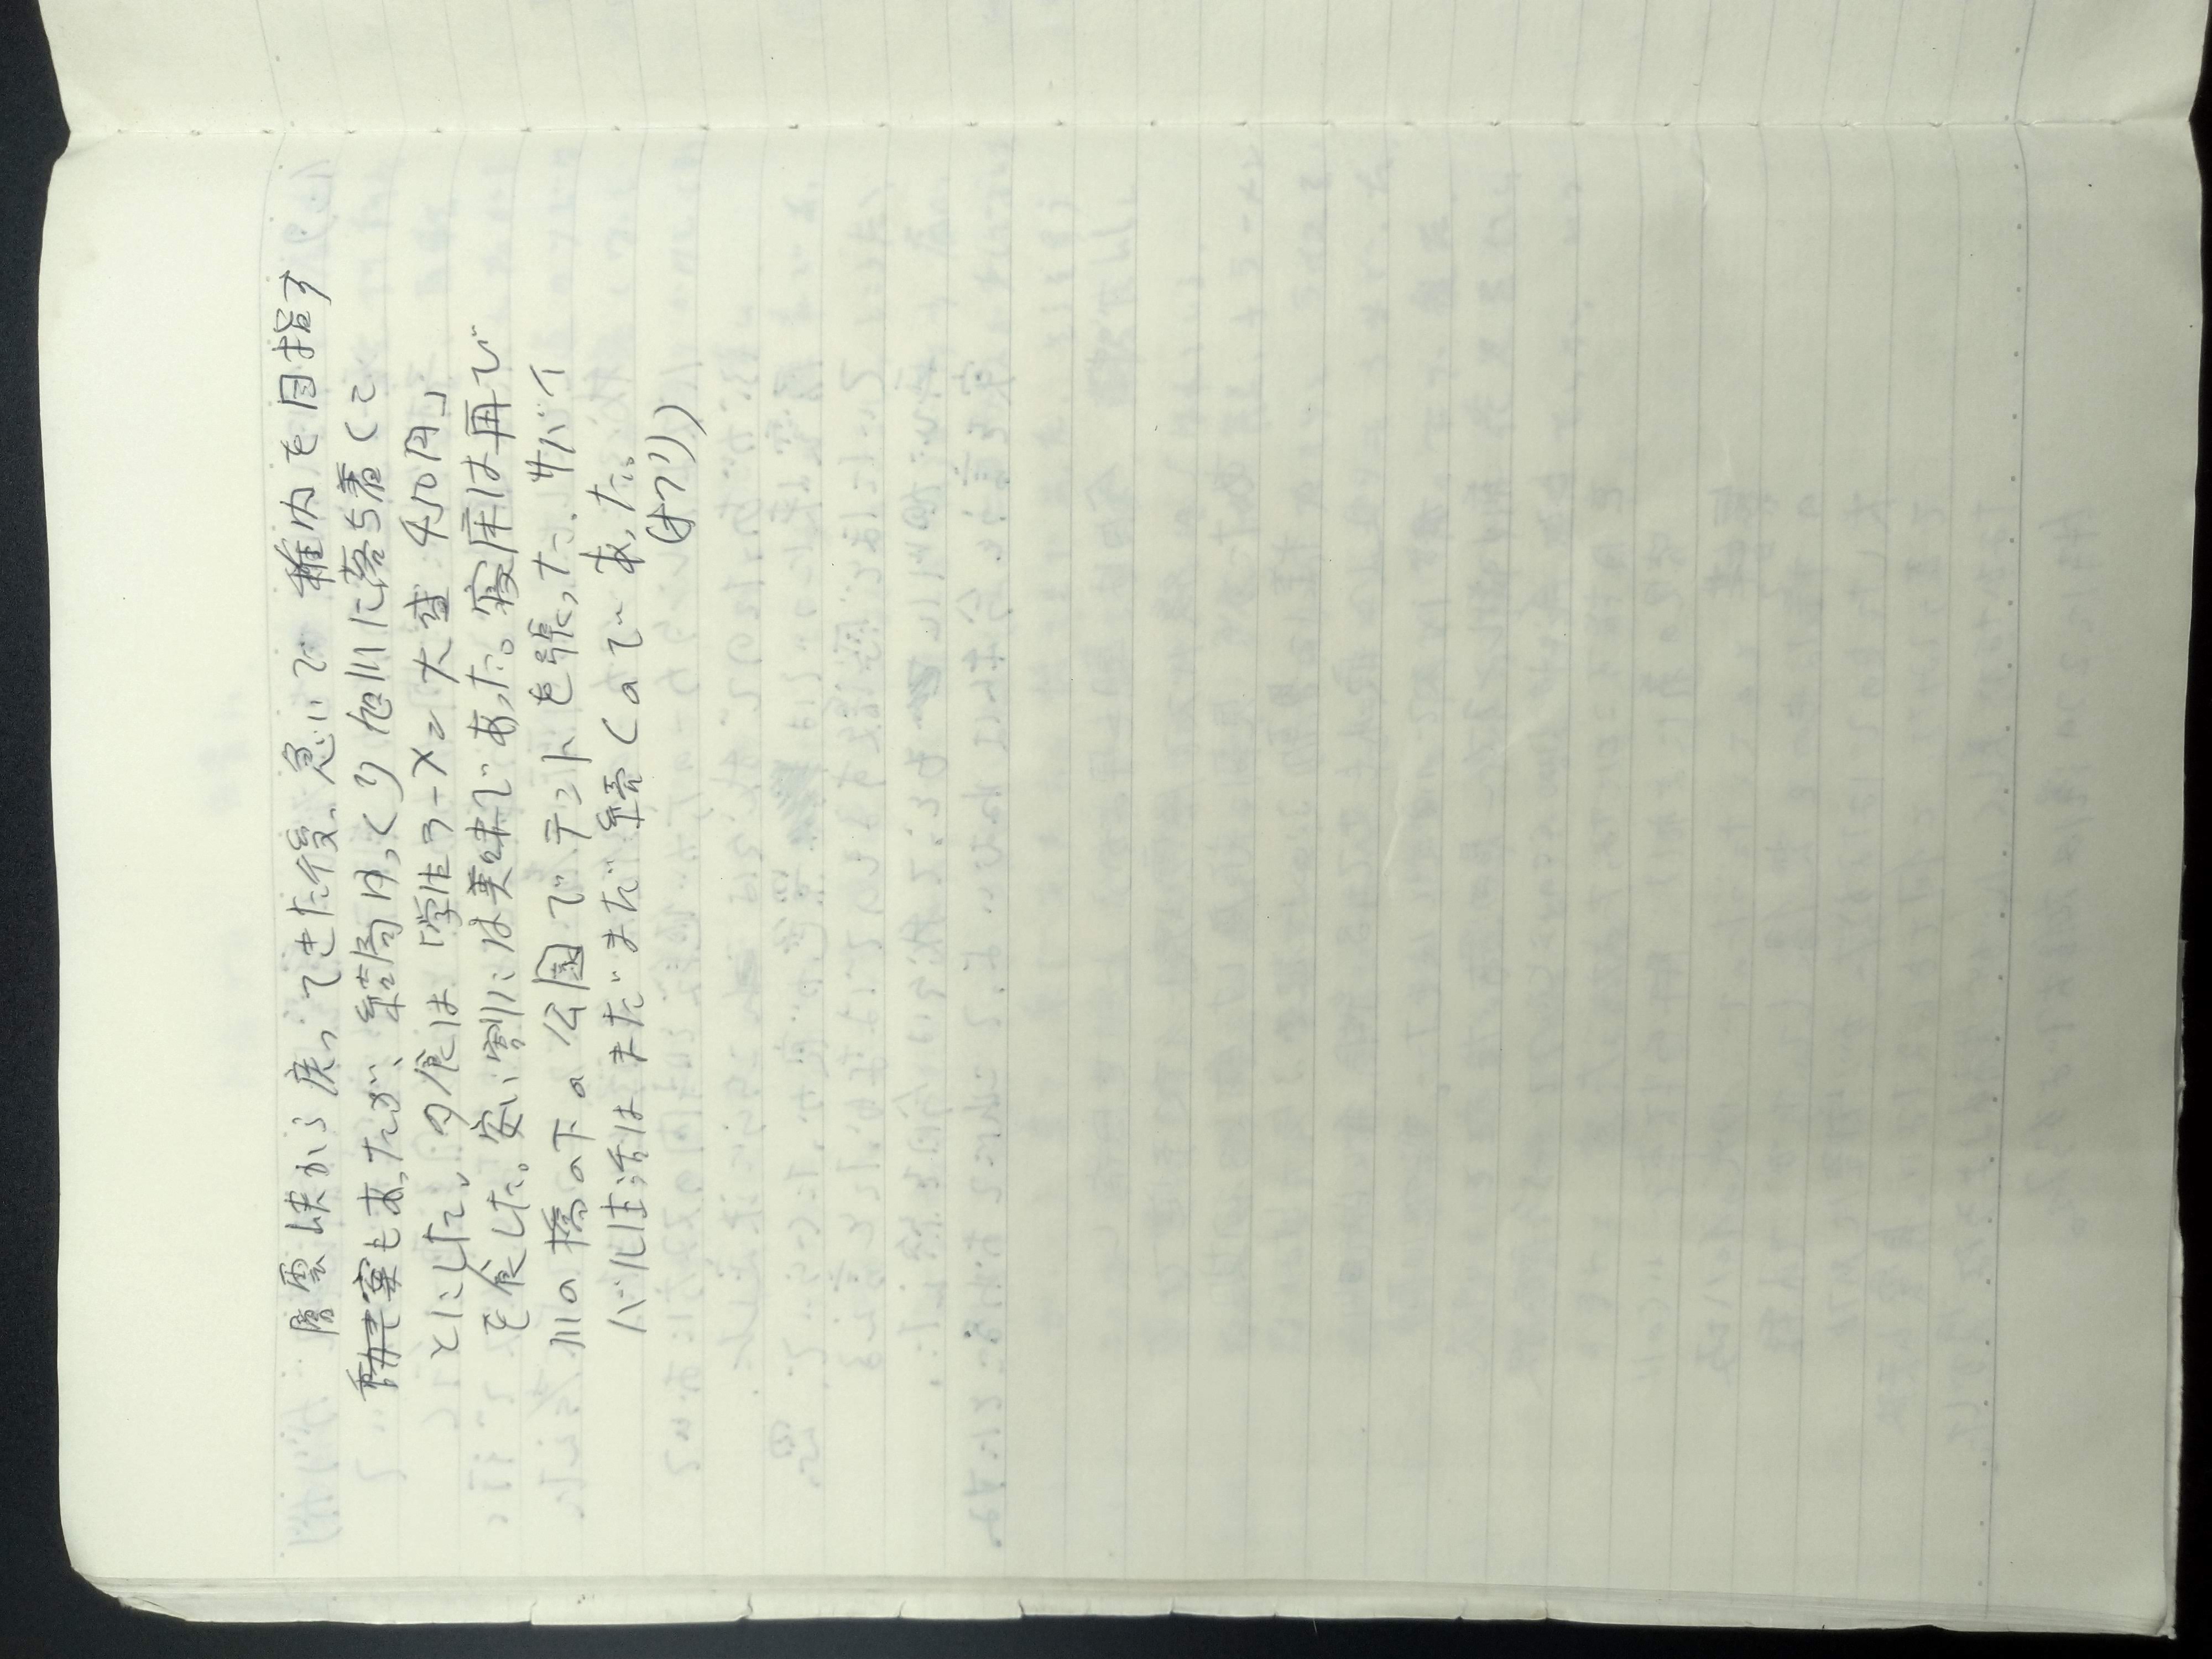 層雲峡から戻ってきた後、急いで稚内を目指す
案もあったが、結局ゆっくり旭川に落ち着くこ
とにした。夕食は「学生ラーメン大盛:450円」
を食した。安い割には美味であった。寝床は再び
川の橋の下の公園でテントを張った。サバイ
バル生活はまだまだまだ続くのであった。